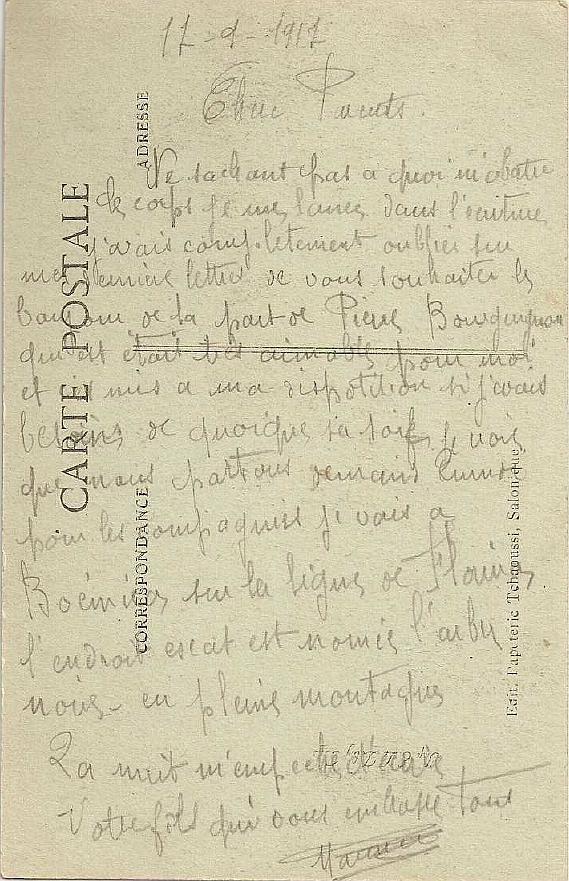 17-9-1917
Cher Parents.
Ne sachant pas a quoi m'abatre
de corps je me lance dans l'écriture
j'avais complètement oublier sur
me dernière lettre de vous souhaiter le
bonjour de la part de Pierre Bourguignon
qui est était très aimable pour moi
et mis a ma disposition si j'avais
besoins de quoique sa soit je vois
que nous partons demains
pour les compagnies je vais a
sur la ligne de
l'endroit est nomée l'arbre
en pleine montagne
La nuit m'empeche
Votre fils qui vous embrasse Tous
CARTE POSTALE
ADRESSE
CORRESPONDANCE
Edit. Papeterie Tchaoussi, Salonique